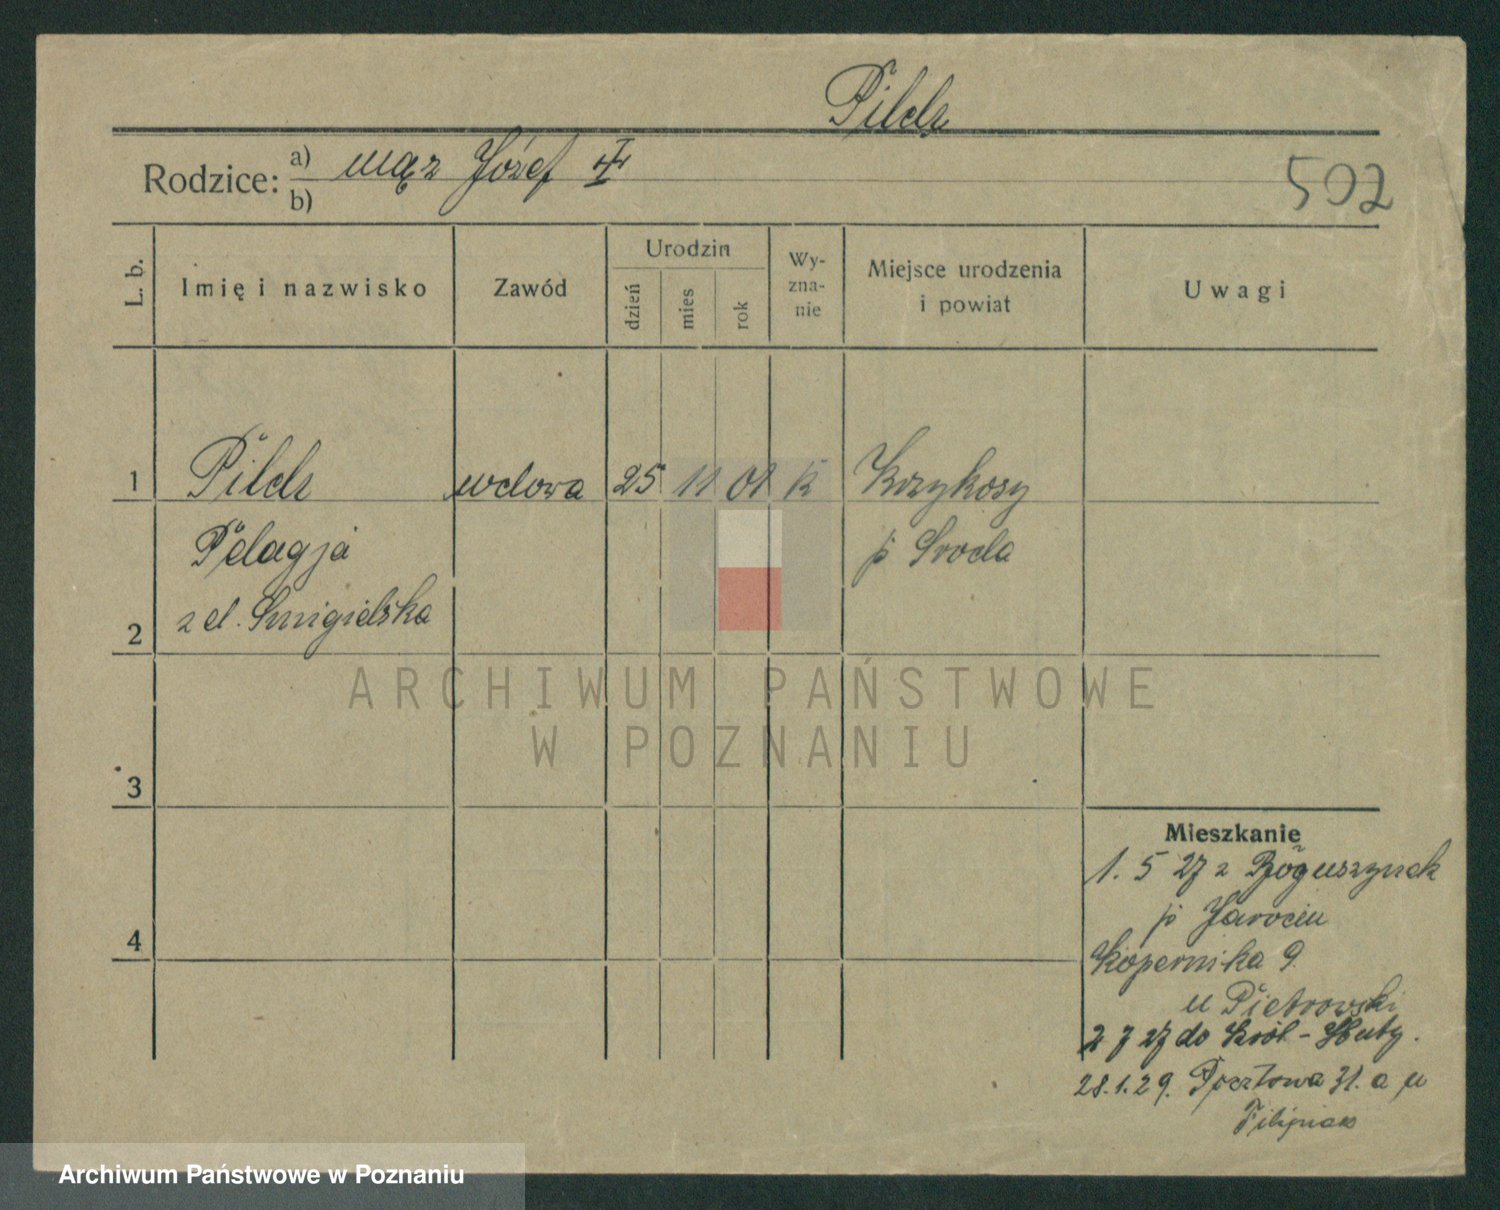 Pilch
Rodzice: a) mąż Józef
b)
502
L. b.
Imię i nazwisko
Zawód
Urodzin
dzień
mies
rok
Wy-
zna-
nie
Miejsce urodzenia
i powiat
Uwagi
1
Pilch
wdowa
25
11
01
k
Krzykosy
Pelagja
p Środa
2
z d. Śmigielska
ARCHIWUM PAŃSTWOWE
W POZNANIU
3
4
Mieszkanie
1. 5 27 z Boguszynek
p Jarocin
Kopernika 9.
u Pietrowski
2 7 27 do Król-Huty.
28.1.29. Pocztowa 31. a u
Filipiak
Archiwum Państwowe w Poznaniu